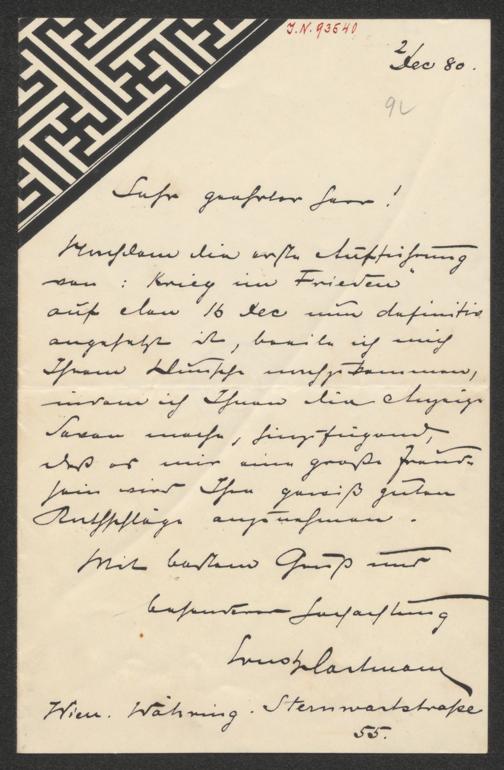 J.N. 93640
2 Dec 80.
92
Sehr geehrter Herr!
Nachdem die erste Aufführung
von: Krieg im Frieden"
auf den 16 Dec nun definitiv
angesetzt ist, beeile ich mich
Ihrem Wunsche nachzukommen,
indem ich Ihnen die Anzeige
davon mache, hinzufügend,
daß es mir eine große Freude
sein wird Ihre gewiß guten
Rathschläge anzunehmen.
Mit bestem Gruß und
besonderer Hochachtung
Ernst Hartmann
Wien. Währing. Sternwartstraße
55.